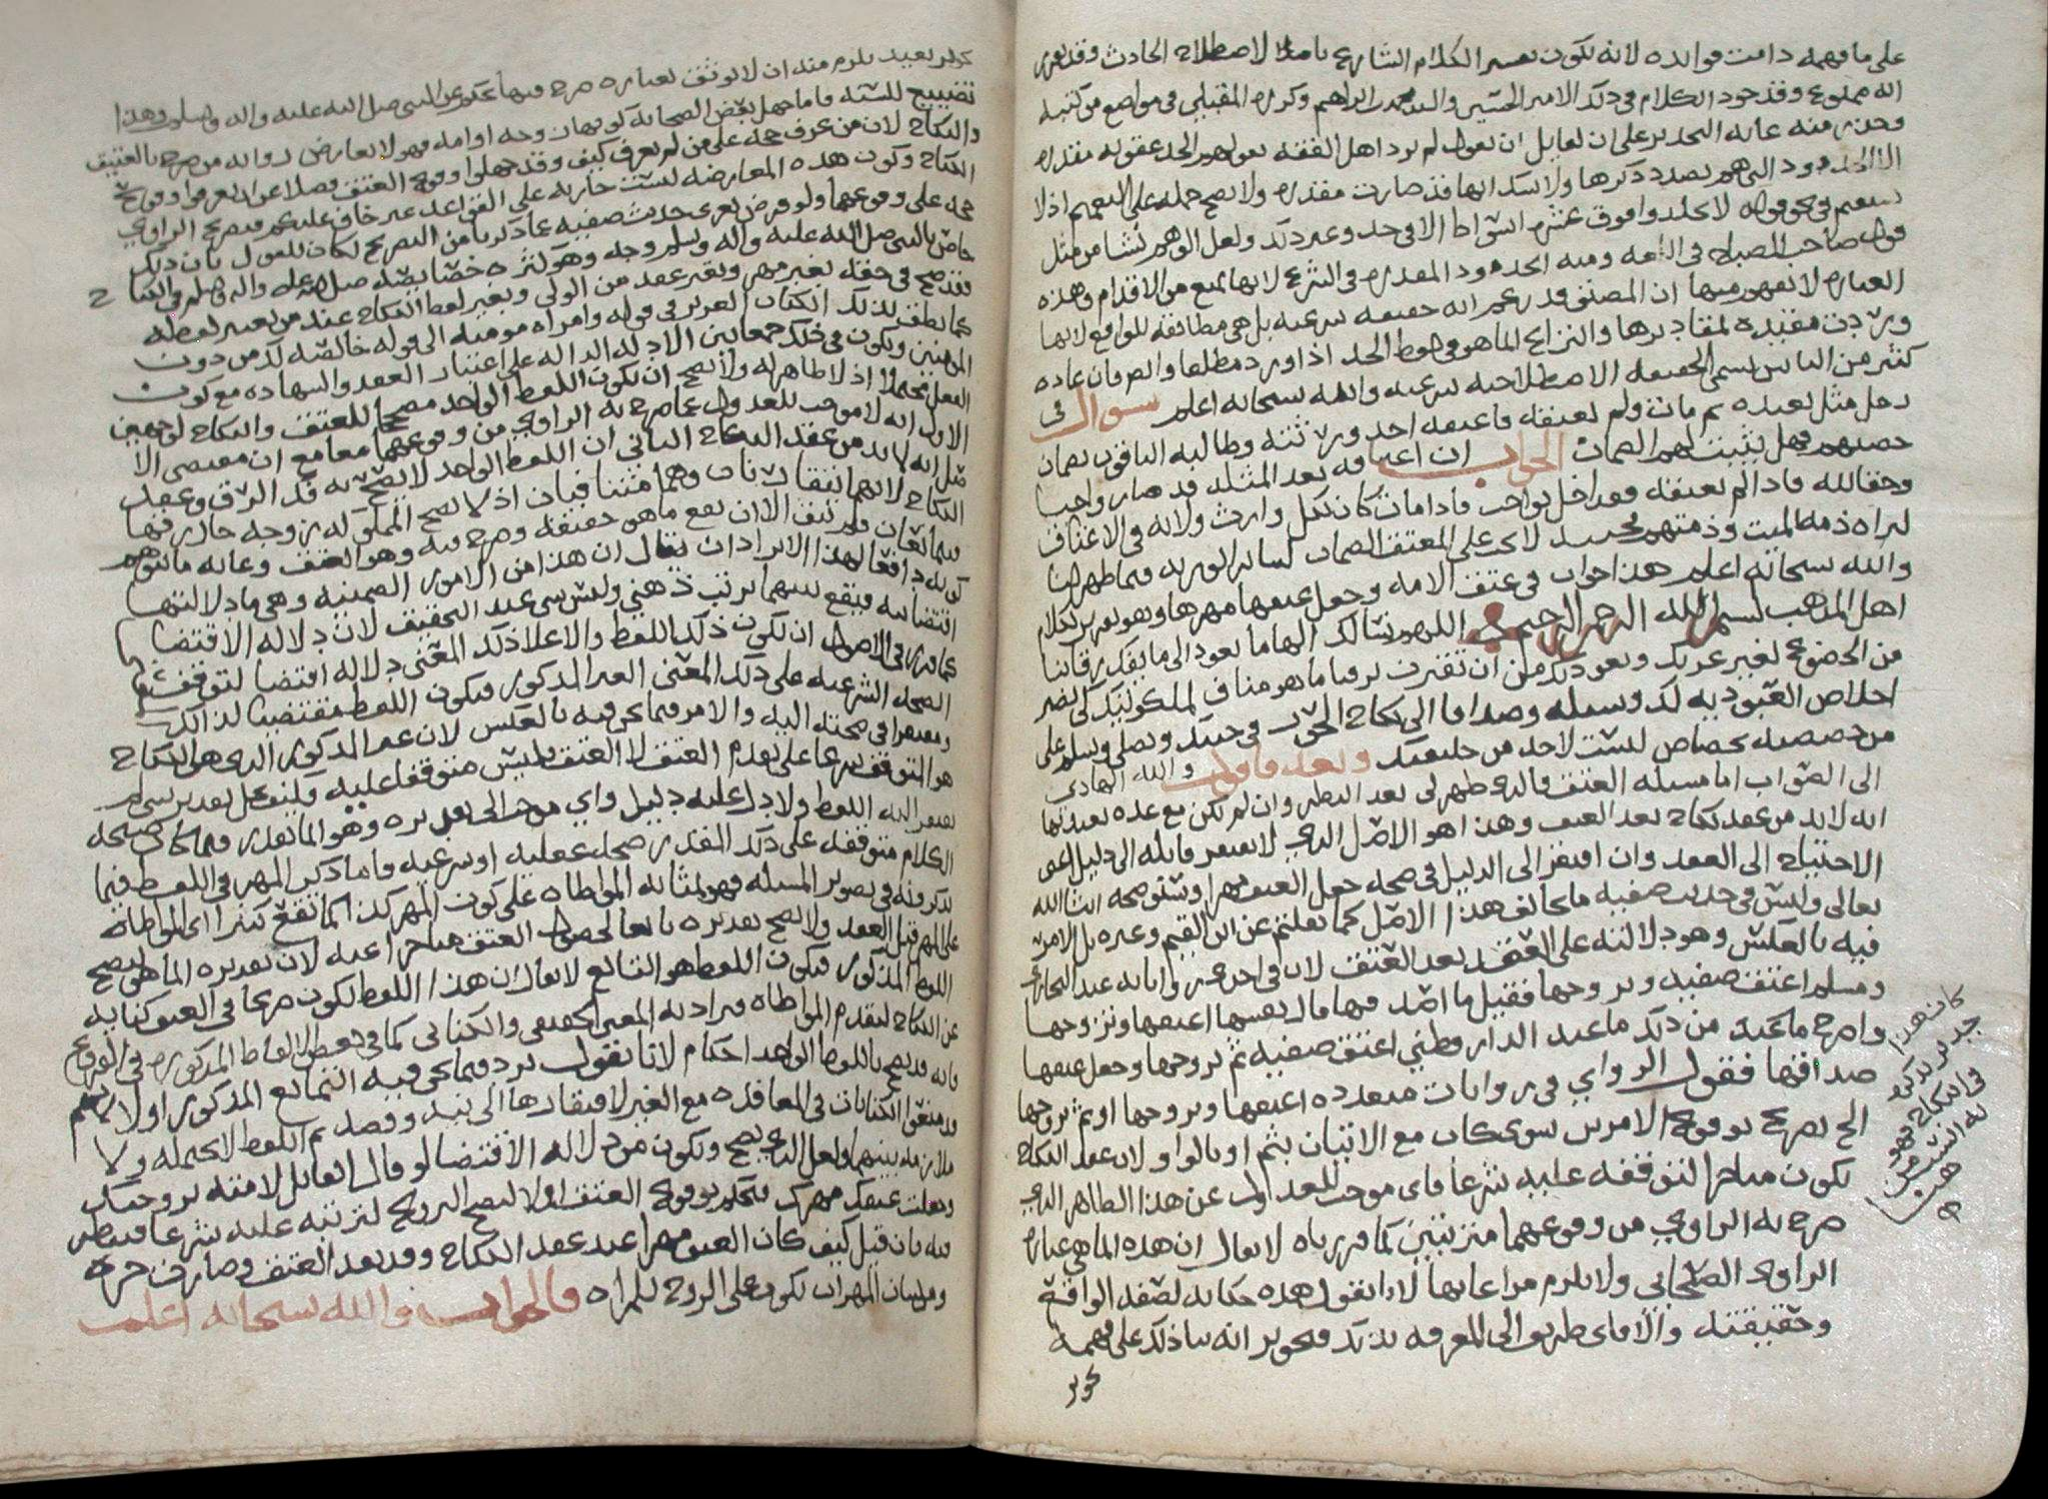 على ما فهمه دامت فوائده لانه يكون تفسير الكلام الشارع بامثلا لاصطلاح الحادث وقد تقرر
انه ممنوع وقد جود الكلام في ذلك الامير الحسين والسيد محمد بن ابراهيم وكرره المقبلي في مواضع من كتبه
وحذر منه غايه التحذير على ان لقايل ان يقول لم يرد اهل الفقه بقولهم الحد عقوبه مقدره
الا الحدود التي هم بصدد ذكرها ولا شك انها قد صارت مقدره ولا يصح حمله على التعميم اذ لا
يستقيم في نحو قوله لا تجلدوا فوق عشره اسواط الا في حد وغير ذلك ولعل الوهم نشا من مثل
قول صاحب المصباح في اللغه ومنه الحدود المقدره في الشرع لانها تمنع من الاقدام وهذه
العباره لا يفهم منها ان المصنف قد زعم انه حقيقه شرعيه بل هي مطابقه للواقع لانها
وردت مقيده لمقاديرها والنزاع انما هو في لفظ الحد اذا ورد مطلقا والعرفان عاده
كثير من الناس يسمى الحقيقه الاصطلاحيه شرعيه والله سبحانه اعلم سوال في
رجل مثل بعبده ثم مات ولم يعتقه فاعتقه احد ورثته وطالبه الباقون بضمان
حصتهم فهل يثبت لهم الضمان الجواب ان اعتاقه بعد المثله قد صار واجبا
وحقا لله فاذا لم يعتقه فقد اخل بواجب فاذا مات كان لكل وارث ولايه في الاعتاق
لبراه ذمه الميت وذمتهم فحينئذ لا يجب على المعتق الضمان لسائر الورثه فيما ظهر لنا
والله سبحانه اعلم هذا جواب في عتق الامه وجعل عتقها مهرها وهو تقرير لكلام
اهل المذهب بسم الله الرحمن الرحيم اللهم نسالك الهاما يعود الى ما يفك رقابنا
من الخضوع لغيرك ونعوذ بك من ان تقترن برقيا ما هو مناف لملكوتيتك كي يصير
اخلاص العبوديه لك وسيله وصداقا الى نكاح الحور في جنتك ونصلي ونسلم على
من خصصته بخصائص ليست لاحد من خليقتك وبعد فاقول والله الهادي
الى الصواب اما مسئله العتق فالذي ظهر لي بعد النظر وان لم يكن مع عده
انه لا بد من عقد نكاح بعد العتق وهذا هو الاصل الذي لا يفتقر قايله الى دليل اعني
الاحتياج الى العقد وان افتقر الى الدليل في صحه جعل العتق مهرا وستوضحه ان شا الله
تعالى وليس في حديث صفيه ما يخالف هذا الاصل كما نقلتم عن ابن القيم وغيره بل الامر
فيه بالعكس وهو دلالته على العقد بعد العتق لان في احدى رواياته عند البخاري
ومسلم اعتق صفيه وتزوجها فقيل ما اصدقها قال نفسها اعتقها وتزوجها
واصرح ما نحنه من ذلك ما عند الدارقطني اعتق صفيه ثم تزوجها وجعل عتقها
صداقها فقول الراوي في روايات متعدده اعتقها وتزوجها او ثم تزوجها
الخ تصريح بوقوع الامرين سوى كان مع الاتيان بثم او بالواو لان عقد النكاح
يكون متاخرا لتوقفه عليه شرعا فاي موجب للعدول عن هذا الظاهر الذي
صرح به الراوي من وقوعهما مترتبين كما قررناه لا يقال ان هذه انما هي عباره
الراوي الصحابي ولا يلزم مراعاتها لانا نقول هذه حكايه لصفه الواقع
وحقيقته والا فاي طريق الى المعرفه بذلك فتجويز انه بنا ذلك على فهمه
تجويز
كان هذا
جديد يذكر
في النكاح فهو
به انسب من
هنا
تجويز بعيد يلزم منه ان لا يوثق بعباره صرح فيها بحكم عن النبي صلى الله عليه واله وسلم وهذا
تضييع للسنه فاما جهل بعض الصحابه كونها زوجه او امه فهو لا يعارض روايه من صرح بالعتق
والنكاح لان من عرف حجه على من لم يعرف كيف وقد جهلوا وقوع العتق فضلا عن ان يعرفوا وقوع
النكاح وكون هذه المعارضه ليست جاريه على القواعد غير خاف عليكم فتصريح الراوي
حجه على وقوعهما ولو فرض تعري حديث صفيه عما ذكرنا من التصريح لكان للقول بان ذلك
خاص بالنبي صلى الله عليه واله وسلم وجه وهو كثره خصايصه صلى الله عليه واله وسلم في النكاح
فقد صح في حقه بغير مهر وبغير عقد من الولي وبغير لفظ النكاح عند من يعتبر لفظه
كما نطق بذلك الكتاب العزيز في قوله وامراه مومنه الى قوله خالصه لك من دون
المومنين ويكون في ذلك جمعا بين الادله الداله على اعتبار العقد والشهاده مع كون
الفعل محتملا اذ لا ظاهر له ولا يصح ان يكون اللفظ الواحد مصححا للعتق والنكاح لوجهين
الاول انه لا موجب للعدول عما صرح به الراوي من وقوعهما معا مع ان مقتضى الا
مثل انه لا بد من عقد النكاح الثاني ان اللفظ الواحد لا يصح به فك الرق وعقد
النكاح لانهما يتنافيان وهما متنافيان اذ لا يصح المملوكه زوجه حال رقها
فيتمانعان فلم يبق الا ان يقع ما هو حقيقه وصرح فيه وهو العتق وغايه ما يتوهم
كونه دافعا لهذا الايراد ان يقال ان هذا من الامور الضمنيه وهي ما دلالتها
اقتضائيه فيقع بينهما ترتيب ذهني وليس بشي عند التحقيق لان دلاله الاقتضا
كما قرر في الاصول ان يكون ذلك اللفظ والاعلا ذلك المعنى دلاله اقتضا لتوقف
الصحه الشرعيه على ذلك المعنى الغير المذكور فيكون اللفظ مقتضيا لذلك
ومفتقرا في صحته اليه والامر فيما نحن فيه بالعكس لان غير المذكور الذي هو النكاح
هو المتوقف شرعا على تقدم العتق لا العتق فليس متوقفا عليه فكيف يحمل تقدير شي لم
يفتقر اليه اللفظ ولا دل عليه دليل واي موجب الى تقديره وهو انما يقدر فيما كان صحه
الكلام متوقفه على ذلك المقدر صحه عقليه او شرعيه واما ذكر المهر في اللفظ فيما
يذكرونه في تصوير المسئله فهو بمثابه المواطاه على كون المهر كذا كما يقع كثيرا المواطاه
على المهر قبل العقد ولا يصح تقديره تابعا لحصول العتق متاخرا عنه لان تقديره انما هو ليصح
اللفظ المذكور فيكون اللفظ هو التابع لا يقال ان هذا اللفظ يكون صريحا في العتق كنايه
عن النكاح لتقدم المواطاه فيراد به المعنى الحقيقي والكنائي كما في بعض الفاظ المذكوره في الفروع
فانه قد يصح باللفظ الواحد احكام لانا نقول يرد فيما نحن فيه التمانع المذكور اولا ثم هم
قد منعوا الكنايات في المعاقده مع الغير لافتقارها الى نيه وقصد ثم اللفظ لا يحتمله ولا
ملازمه بينهما ولعل الذي يصح ويكون من دلاله الاقتضا لو قال القايل لامته تزوجتك
وجعلت عتقك مهرك فتحكم بوقوع العتق اولا ليصح التزويج لترتبه عليه شرعا فينظر
فيه فان قيل كيف كان العتق مهرا عند عقد النكاح وقد بعد العتق وصارت حره
ومن شان المهر ان يكون على الزوج للمراه فالجواب والله سبحانه اعلم